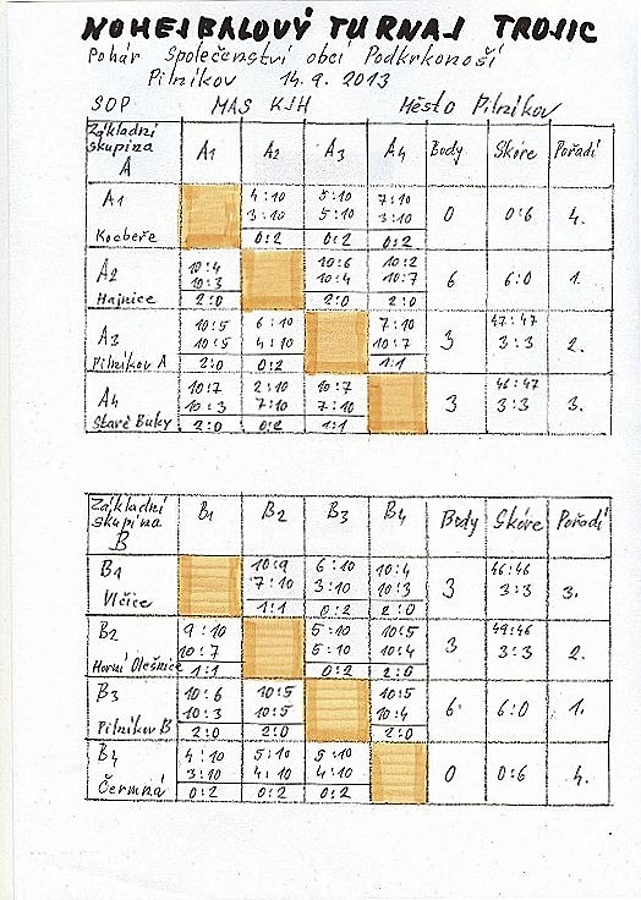 NOHEJBALOVÝ TURNAJ TROJIC
Pohár Společenství obcí Podkrkonoší
Pilníkov 14.9.2013
SOP MAS KJH Město Pilníkov
Základní skupina A A1 A2 A3 A4 Body Skóre Pořadí
A1 4:10 5:10 7:10
3:10 5:10 3:10 0 0:6 4.
Kocbeře 0:2 0:2 0:2
A2 10:4 10:6 10:2
10:3 10:4 10:7 6 6:0 1.
Hajnice 2:0 2:0 2:0
A3 10:5 6:10 7:10 47:47
10:5 4:10 10:7 3 3:3 2.
Pilníkov A 2:0 0:2 1:1
A4 10:7 2:10 10:7 46:47
10:3 7:10 7:10 3 3:3 3.
Staré Buky 2:0 0:2 1:1
Základní skupina B B1 B2 B3 B4 Body Skóre Pořadí
B1 10:9 6:10 10:4 46:46
7:10 3:10 10:3 3 3:3 3.
Vlčice 1:1 0:2 2:0
B2 9:10 5:10 10:5 49:46
10:7 5:10 10:4 3 3:3 2.
Horní Olešnice 1:1 0:2 2:0
B3 10:6 10:5 10:5
10:3 10:5 10:4 6 6:0 1.
Pilníkov B 2:0 2:0 2:0
B4 4:10 5:10 5:10
3:10 4:10 4:10 0 0:6 4.
Čermná 0:2 0:2 0:2